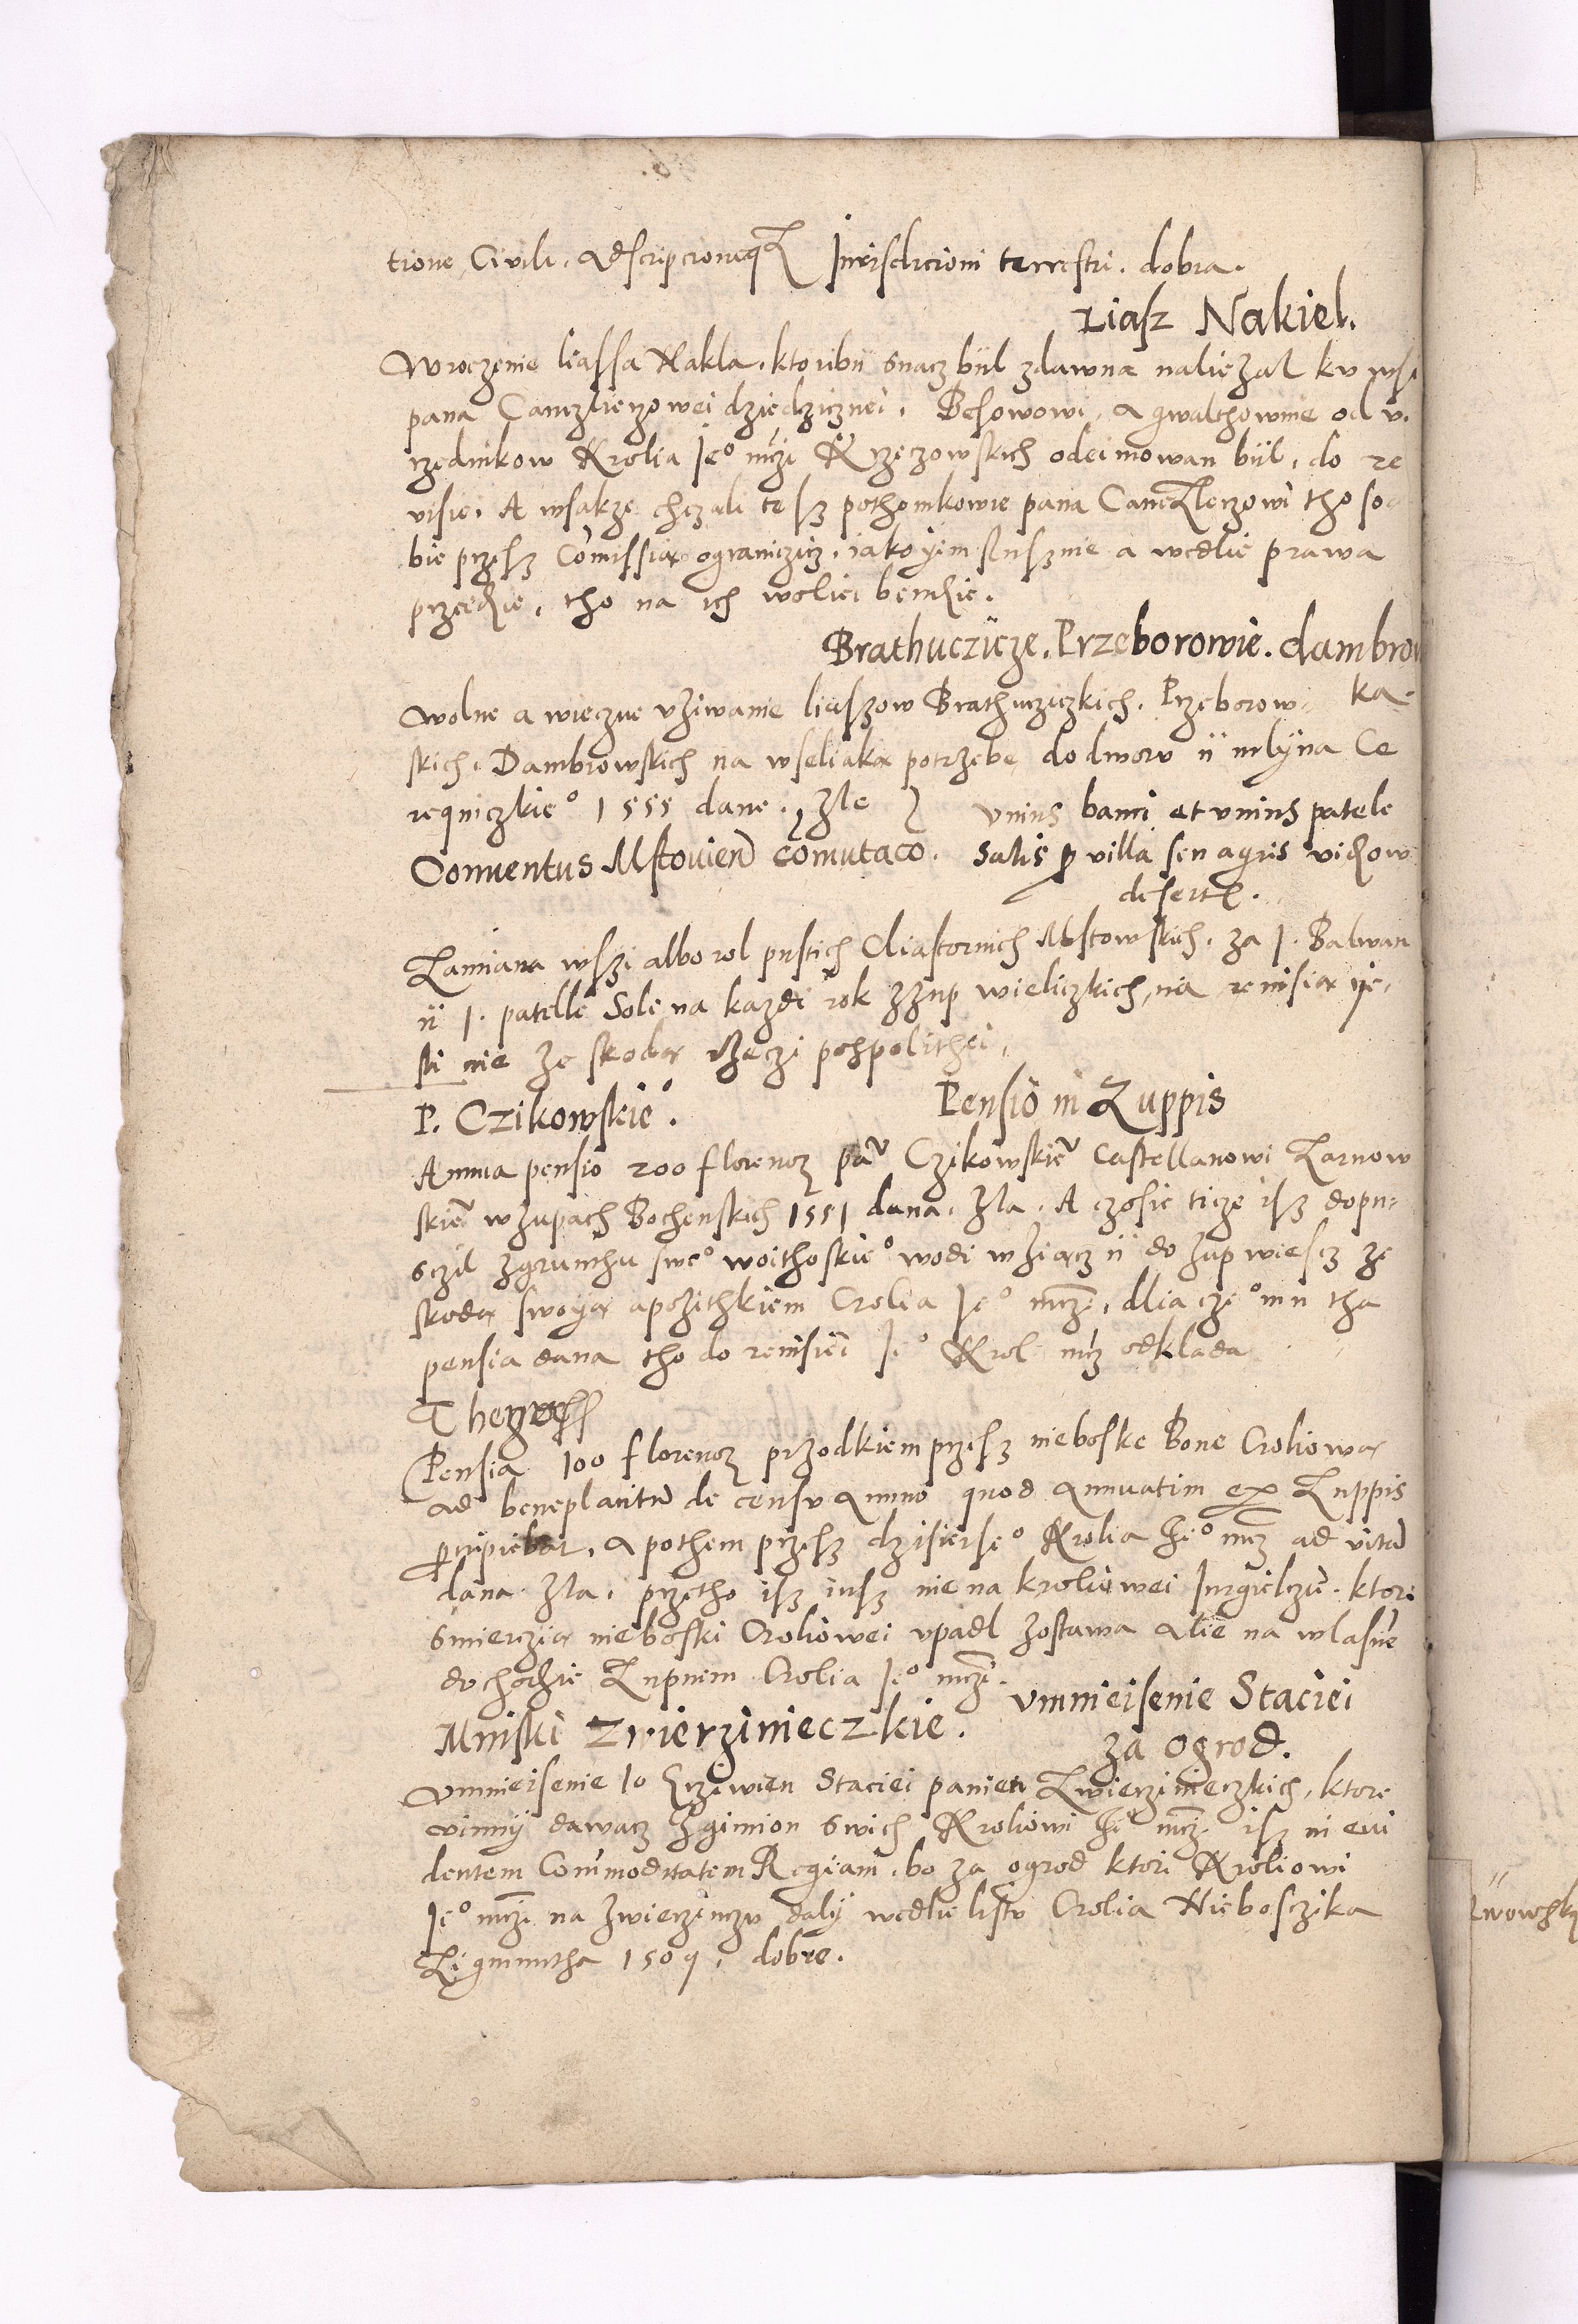 tione Civili. adscripcioneqȝ Jurisdicioni terrestri. dobra.
Liasz Nakiel.
Wroczenie liassa Nakla. ktoribÿ snacz bÿl zdawna naliezal ku wsi
pana Canczlierzowei dziedzicznei. Besowowi, a gwalthownie od v.
rzednikow Krolia Jeº mczi Krzeczowskich odeimowan bÿl, do re
visie. A wsakze chczali tesz pothomkowie pana Canczlerzowi tho so
bie przesz Comissia ograniczicz. iako yim slusznie a wedlie prawa
przedzie, tho na ich woliei bendzie.
Brathuczicze. Przeborowie. dambrow
ka.
Wolne a wieczne vziwanie liaszow Brathucziczkich. Przeborow.
skich. Dambrowskich na wseliaka potrzebe do dworu ÿ mlÿna Ce
reqniczkieº 1555 dane. zle
Conventus Mstovien comutaco.
vnius banci et vnius patele
Salis ꝑ villa seu agris
desert.
Zamiana wszi albo rol pustich Cliastornich Mstowskich. za j. Balwan
ÿ j. patelle Sole na kazdi rok z zup wieliczkich, na revisia ye.
sli nie ze skoda rzeczi pospolithei.
P. Czikowskieº.
Pensio in Zuppis
Annua pensio 200 florenoz paᵛ Czikowskieᵛ Castellanowi Zarnow
skieᵛ w zupach Bochenskich 1551 dana. zla. A czosie ticze isz dopu-
sczil z grunthu sweº woithoskieº wodi wziacz ÿ do zup wiescz ze
skoda swoya a pozithkiem Crolia Jeº mcze, dlia czeº mu tha
pensia dana tho do revisiei Jº Krol mcz odklada
Pensia 100 florenoz przodkiem przesz nieboske Bone Croliowa
ad beneplacitu de censu annuo quod annuatim ex Zuppis
ꝑcipiebat, a pothem przesz dzisierseº Krolia Jeº mcz ad vita
dana. zla. przetho isz iusz nie na kroliowei Jurgielczu. ktori
smierczia nieboski Croliowei vpadl zostawa alie na wlasne
dochodzie Zupnem Crolia Jeº mcze.
Mniski Zwierzinieczkie.
Vmnieisenie Staciei
za ogrod.
Vmnieisenie 10 Grziwien Staciei panien Zwierzinieczkich, ktore
vinnÿ dawacz z gimion swich Kroliowi Jeº mcze isz in evi
dentem Commoditatem Regiam. bo za ogrod ktori Kroliowi
Jeº mcze na Zwierzinczu dalÿ wedlie listu Crolia Nieboszika
Zigmuntha 1509. dobre.